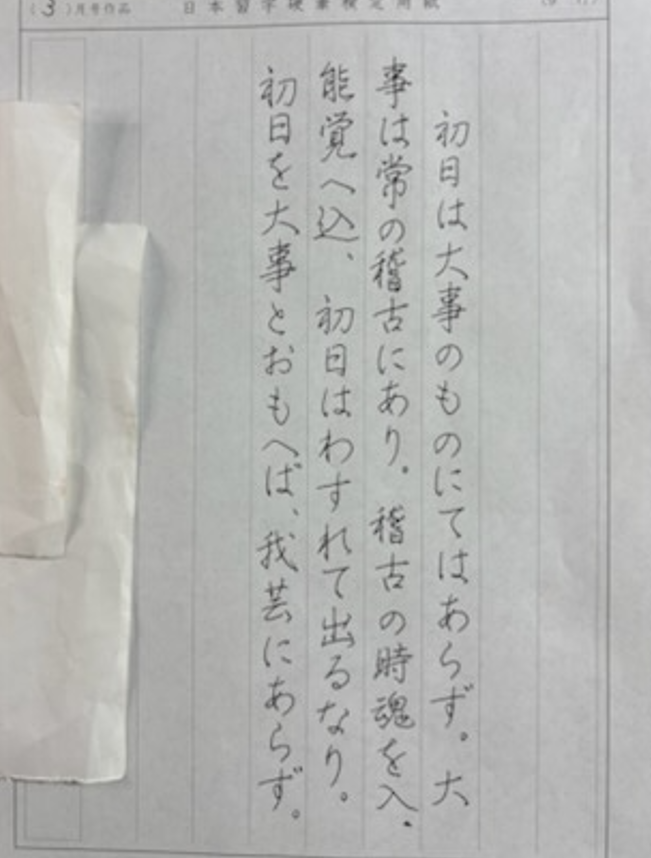 (3)月号作品 日本習字硬筆検定用紙
初日は大事のものにてはあらず。大
事は常の稽古にあり。稽古の時魂を入、
能覚へ込、初日はわすれて出るなり。
初日を大事とおもへば、我芸にあらず。